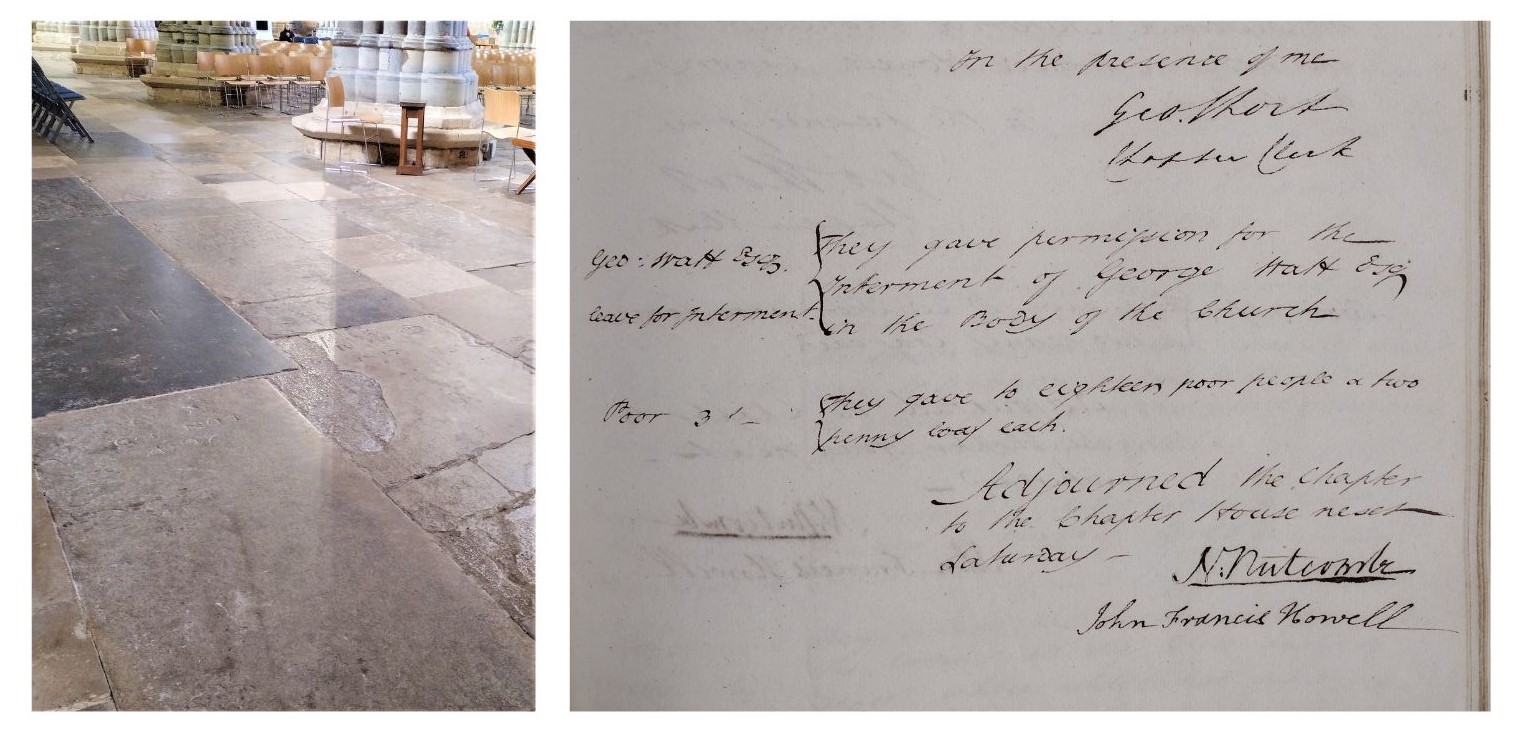 In the presence of me
Geo. Short
Chapter Clerk
Geo: Watt Esq.
leave for Interment
They gave permission for the
Interment of George Watt Esq
in the Body of the Church
Poor 3/-
They gave to eighteen poor people a two
penny loaf each.
Adjourned the Chapter
to the Chapter House next
Saturday –
N. Nutcombe
John Francis Howell